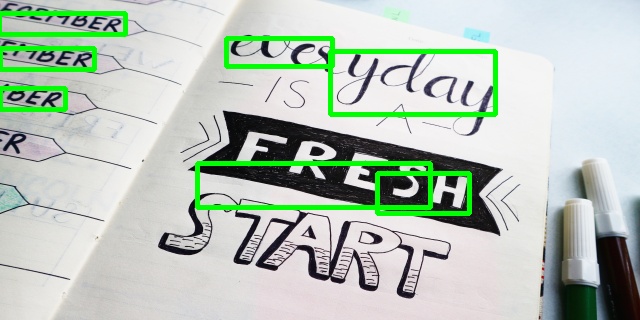 DECEMBER
EMBER
BER
ER
everyday
IS A
FRESH
START